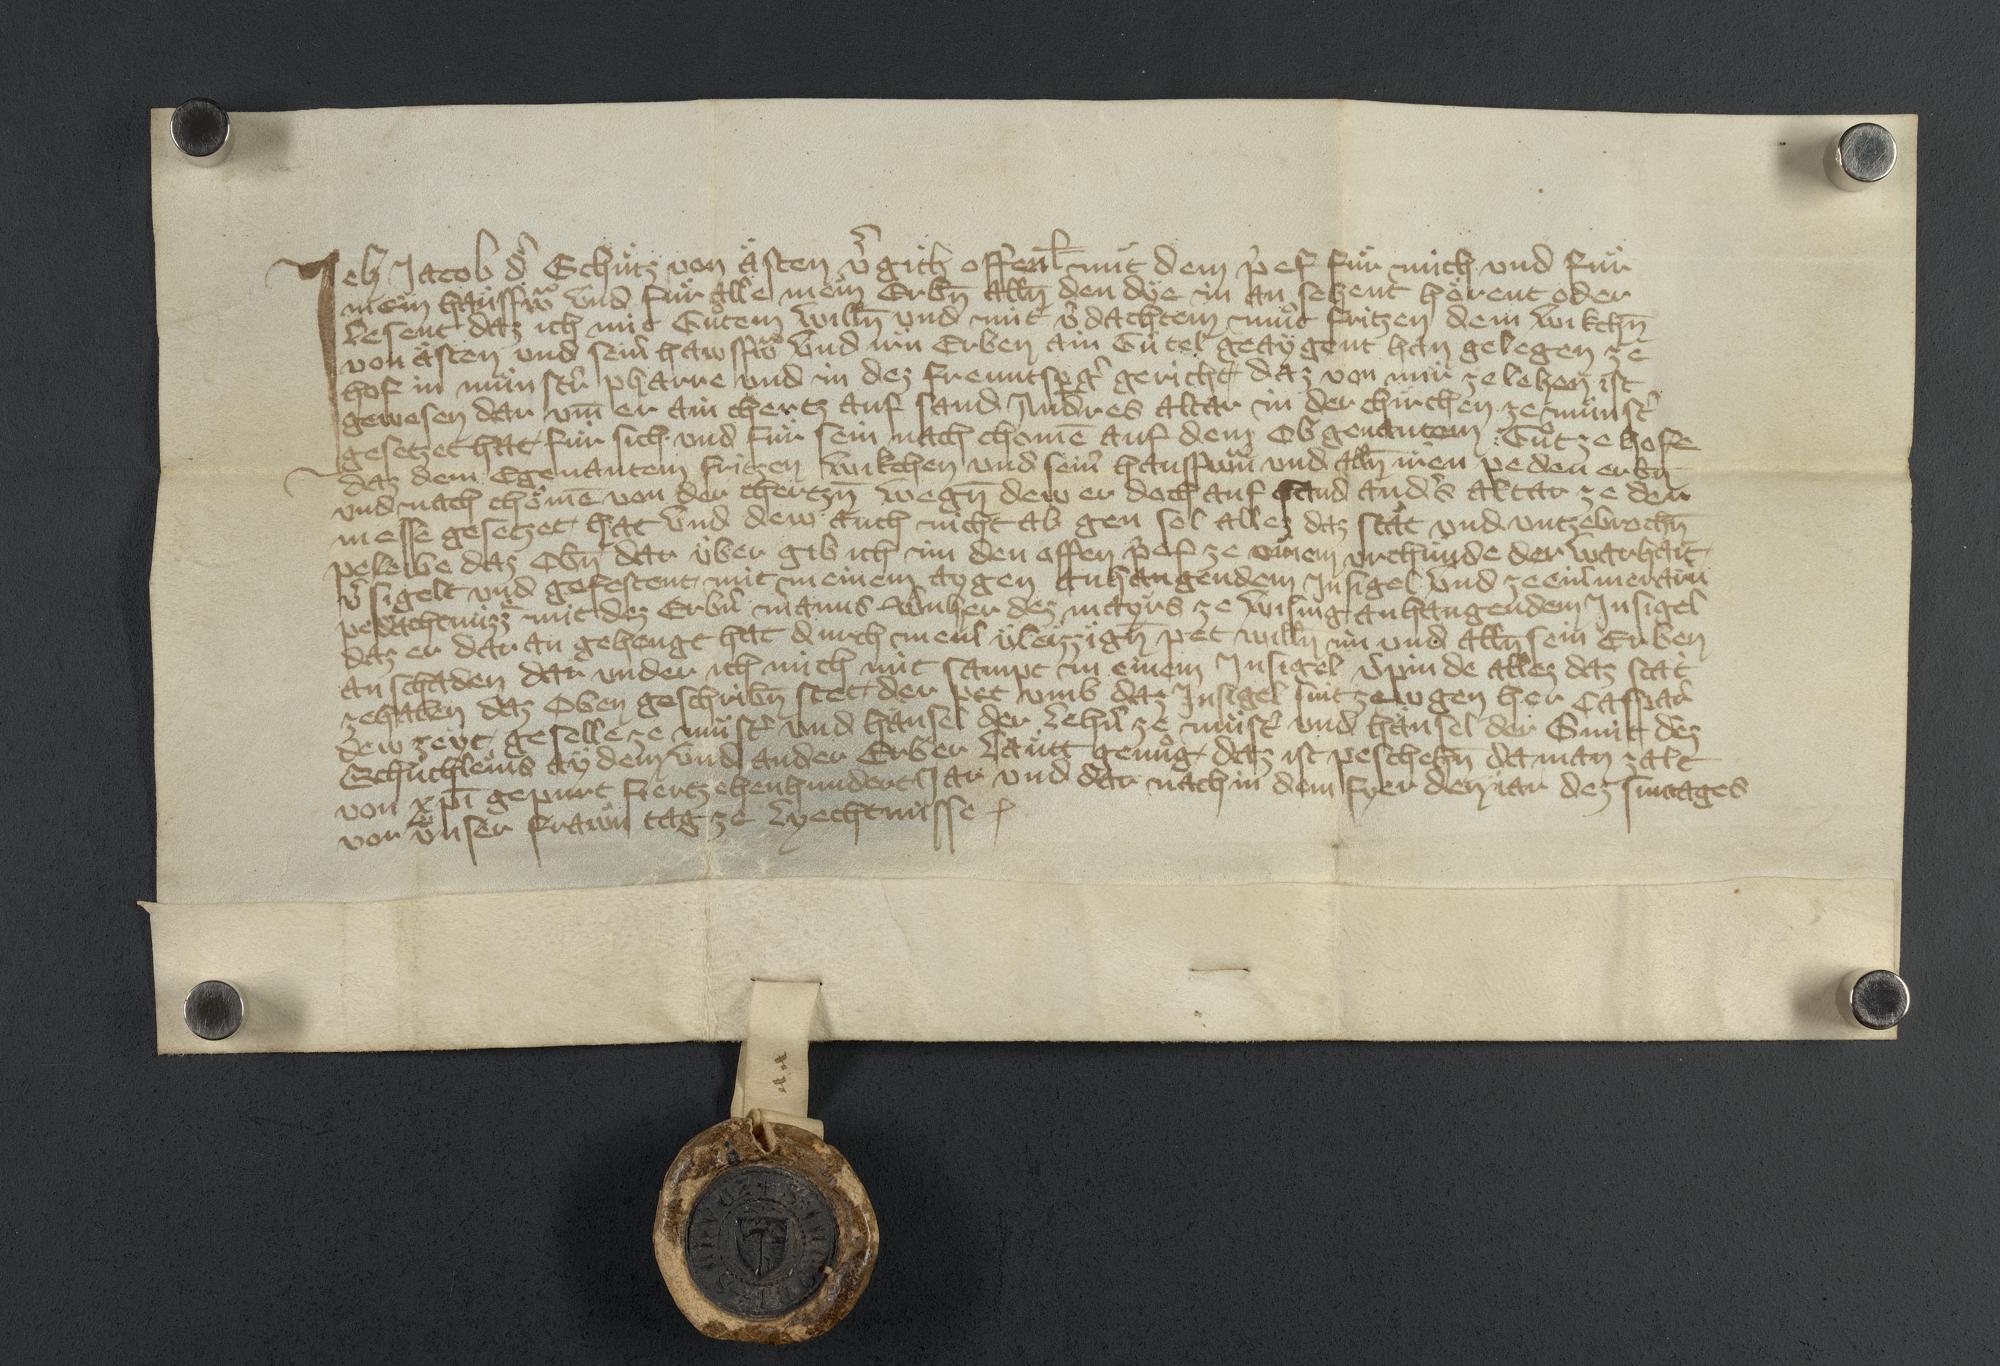 Ich Jacob d͛ Schütz von Ästen v͛gich offenl̄ mit dem p͛ef für mich und für
mein hausfw͛ und für alle mein Erbn̄ alln̄ den dye in an sehent hörent oder
lesent daz ich mit Gůtem willn̄ und mit v͛dachtem můt fritzen dem wikchn̄
von Ästen und sein͛ hawsfw͛ und irn Erben ain Gütel geaygent han gelegen ze
hof in münst͛ pharre und in dez frenntsp͛g͛ gericht daz von mir ze lehen ist
gewesen dar vm̄ er ain chertz auf sand Andres altar in der chirchen ze münst͛
gesetzet hat für sich und für sein nach chomē auf dem Obgenantem Gůt ze hoffe
daz dem Egenantem fritzen wikchen und sein͛ hausfwn͛ und alln̄ iren peden erbn̄
und nach chömē von der chertzn̄ wegn̄ dew er doch auf sand and͛s altar ze der
messe gesetzet hat und dew auch nicht ab gen sol allez daz stät und untzebrochn̄
peleibe daz Obn̄ dar über gib ich im den offen p͛ef ze einem urchünde der warhait
v͛sigelt und gefestent mit meinem aygen anhangendem Insigel und ze einer merarn
pedächtnüzz mit dez Erbn͛ manns wernher dez mayrs ze wising anhangendem Insigel
daz er dar an gehengt hat durch meiner vleizzign̄ pet willn̄ im und alln̄ sein Erben
an schaden dar under ich mich mit sampt meinem Insigel v͛pinde allez daz stät
ze haben daz Oben geschribn̄ stet der pet umb daz Insigel sint zewgen her Caspar
dew zeyt geselle ze müst͛ und hänsel der Lehn͛ ze müst͛ und hänsel der Smit dez
Schüchleins aydem und ander Erber läutt genůg daz ist peschehn̄ da man zalt
von xp̄i gepurt fiertzehenhundert Jar und dar nach in dem fyerden iar dez sintages
vor unser frawn tag ze lyechtmisse